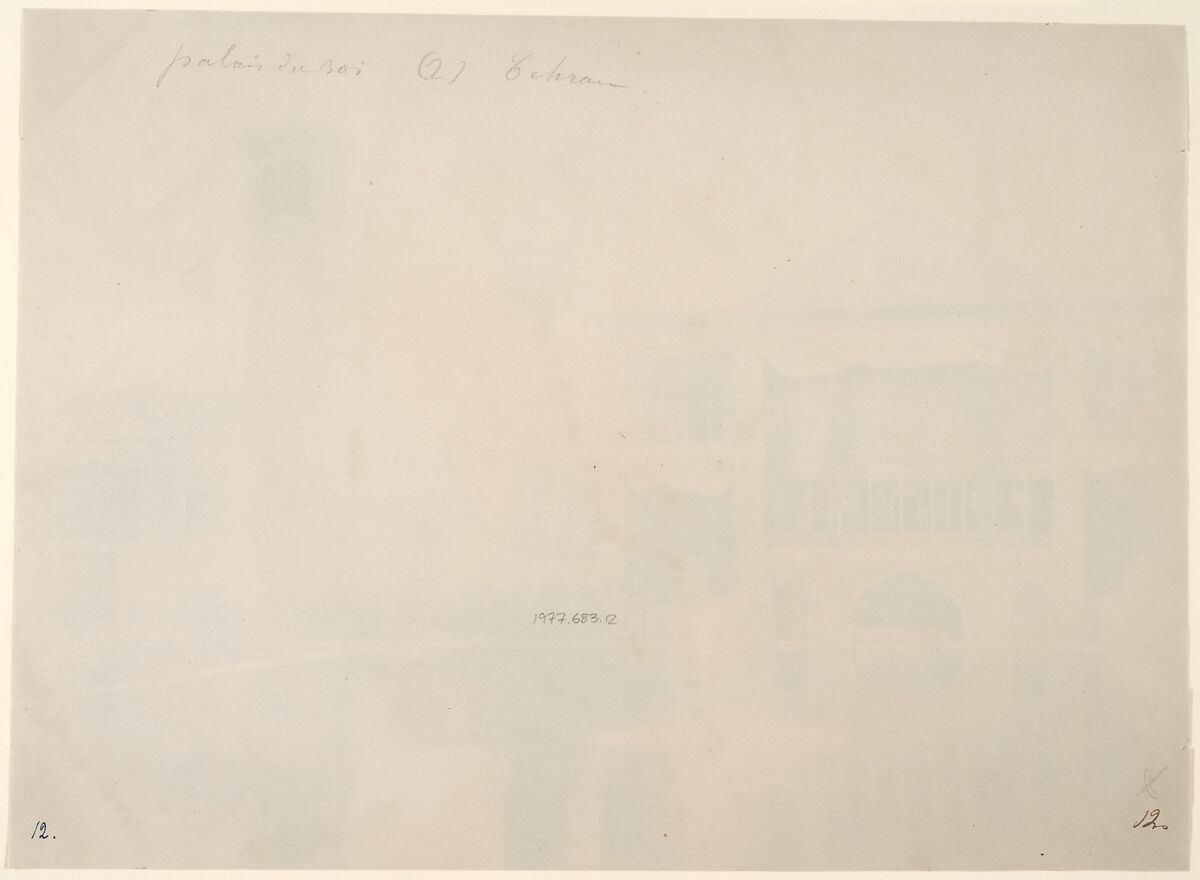 palais du roi (2) Tehran
1977.683.12
12.
12.